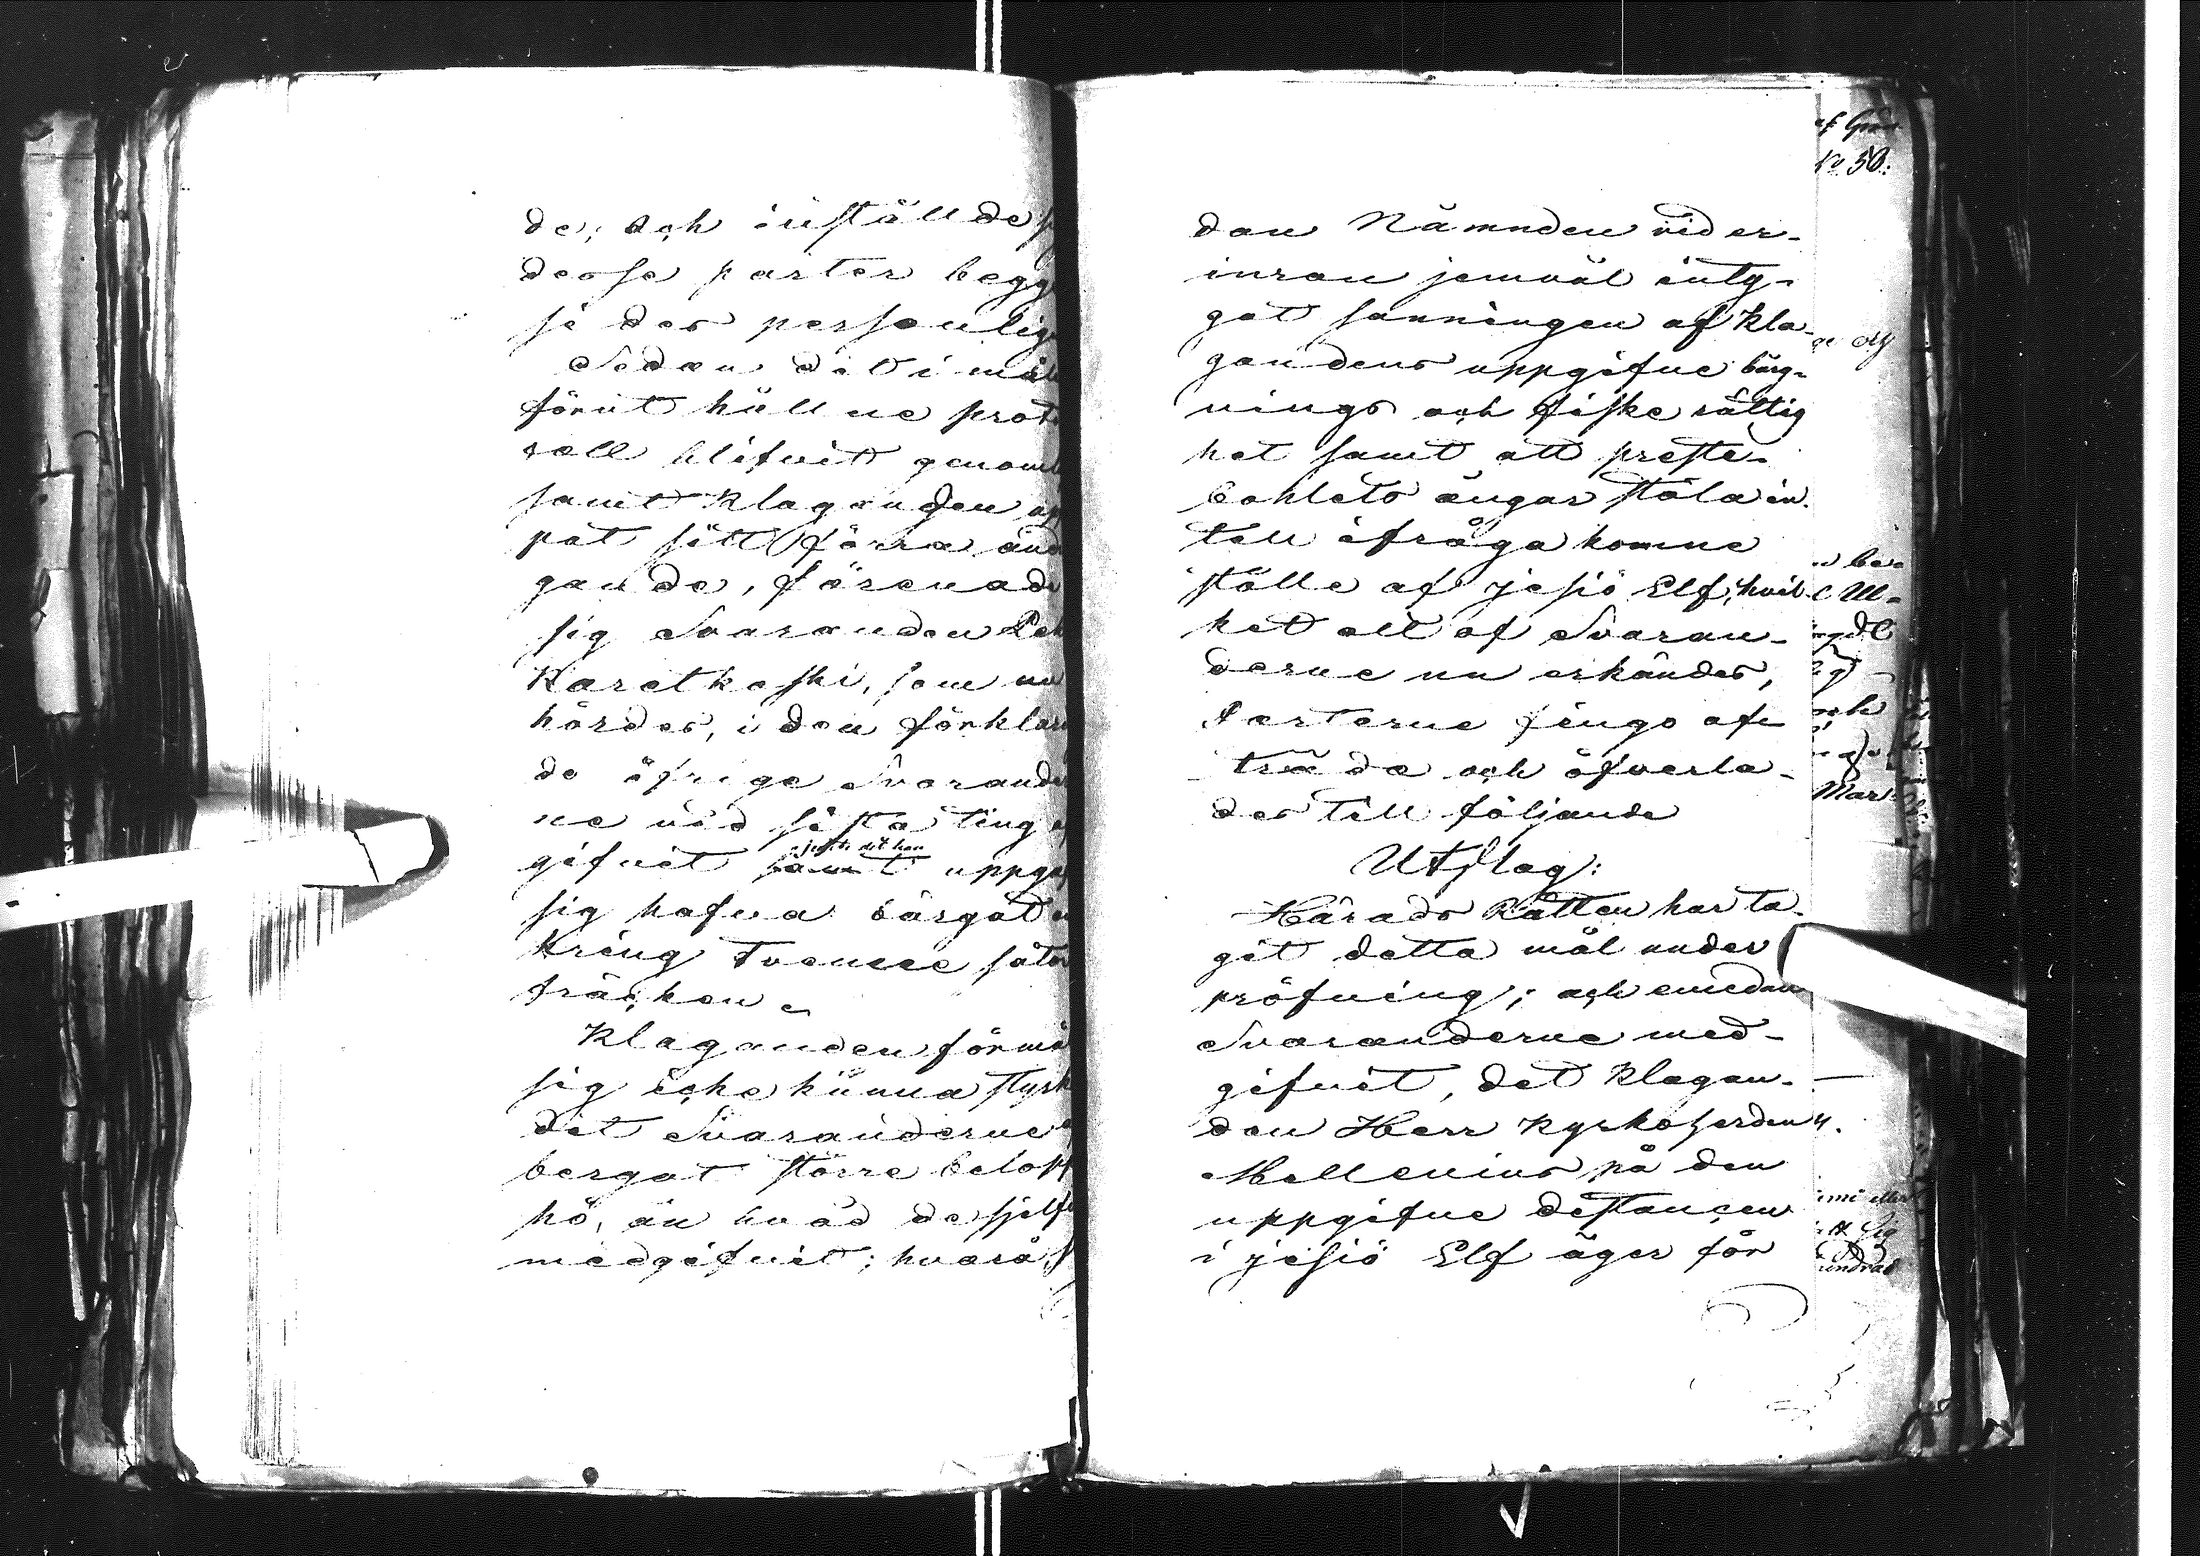 de; och inställde
desse parter begg
je der personlig
Sedan det i mål
förut hållne prot
coll blifvit genom
samt Klaganden
pat sitt förra
gande, förenade
sig Svaranden
Karetkoski, som nu
hördes, i den förklar
de öfrige Svarande
ne vid sista ting
gifvit samt uppga
jemte det han
sig hafva bärgat
kring Tvenne
Klaganden förmå
sig icke kunna styrk
det Svaranderne
bergat större belopp
hö, än hvad de sjelfv
medgifvit; hvarå
dan Nämnden vid er-
inran jemväl inty-
gat sanningen af Kla-
gandens uppgifne bärg-
nings och fiske rättig
het samt att preste-
bohlets ängar stöta in-
till ifråga komne
ställe af jesiö Elf, hvil-
ket allt af Svaran-
derne nu erkändes,
Parterne fingo af-
träda och öfverla-
des till följande
Utslag:
Härads Rätten har ta-
git detta mål under
pröfning; och emedan
Svaranderne med-
gifvit, det Klagan-
den Herr Kyrkoherden
Mellenius på den
uppgifne distancen
i jesiö Elf äger för
No 58:
och
Mar